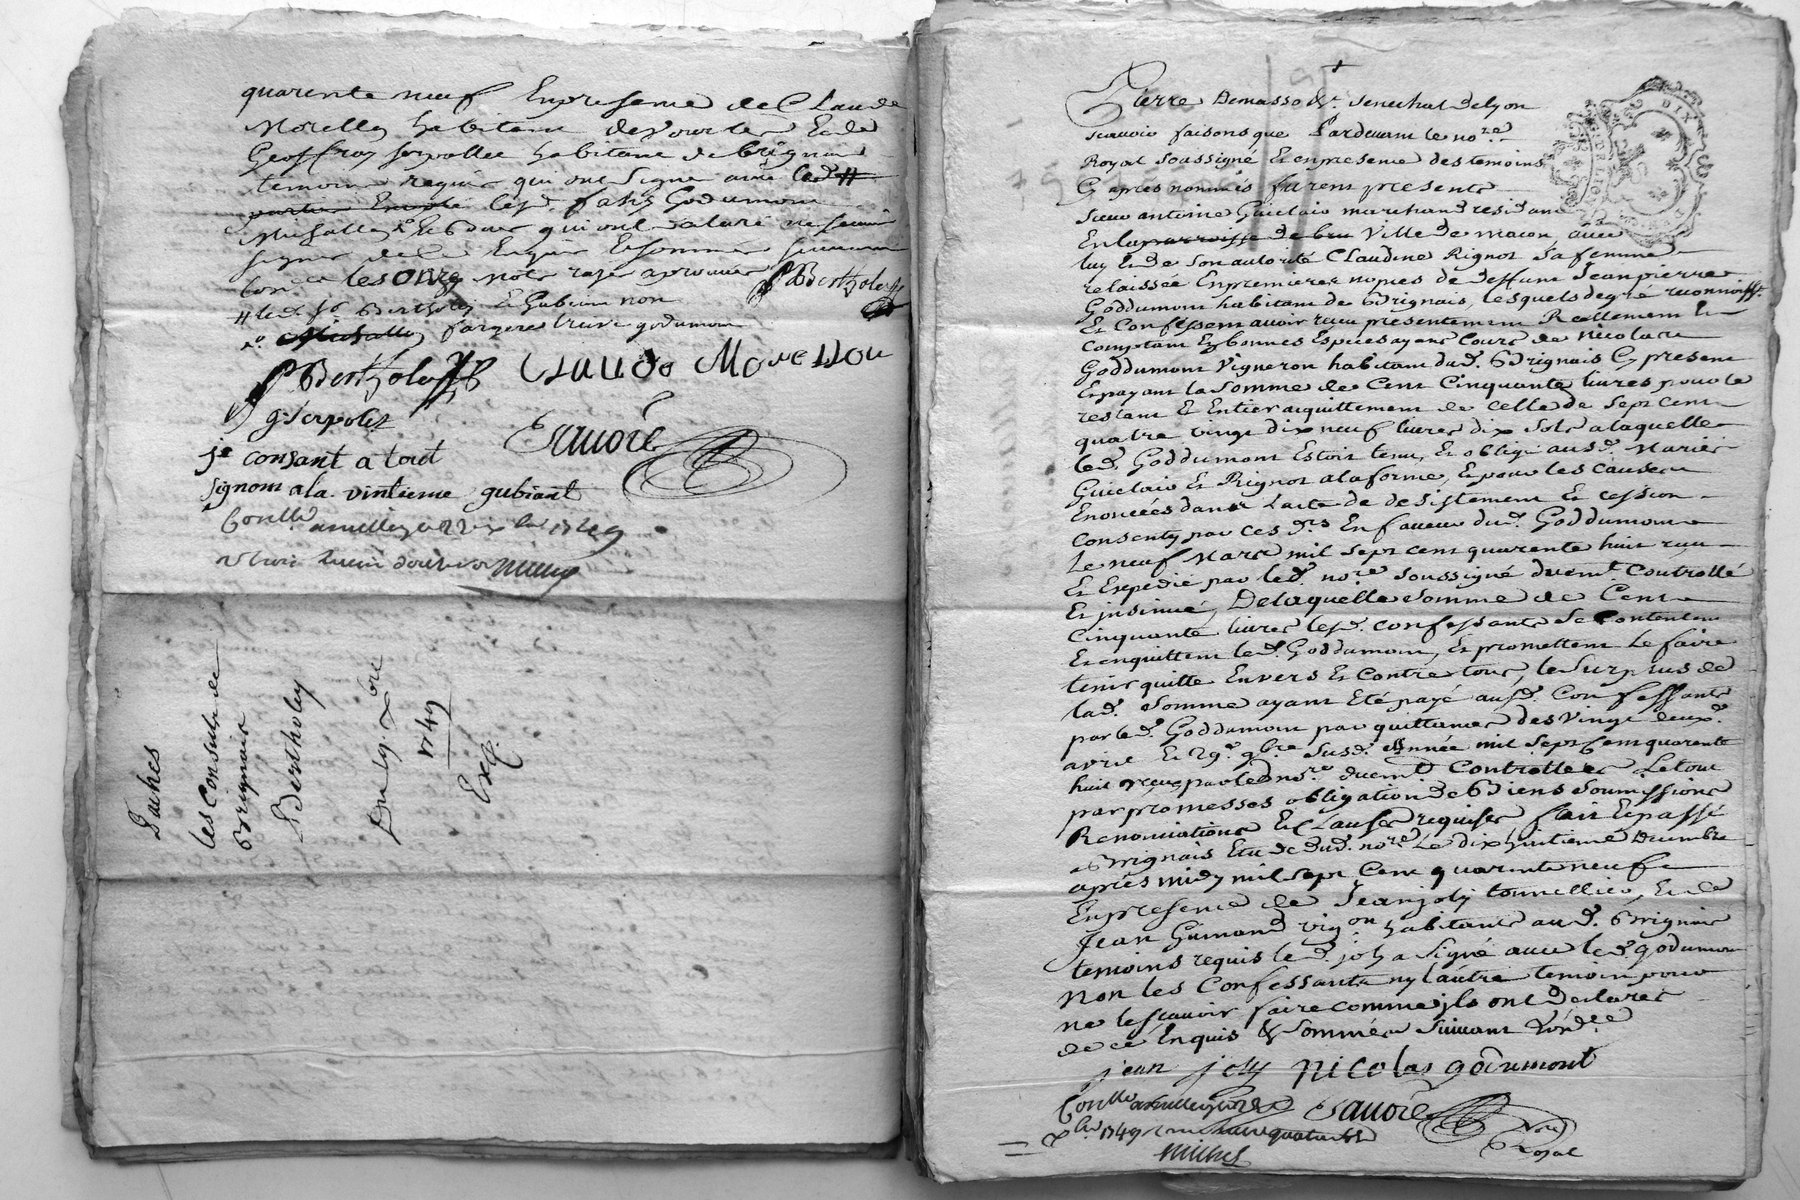 quarente neuf Enpresence de Claude
Morellon habitant de Vourles Et de
Geoffroy serpollet habitant de brignais
temoins requis qui ont signé avec
lesd. fahy Godumont
qui ont declaré ne scavoir
signer de ce Enquis Et sommés suivant
les onze mots raye aprouvez PBertholey
led. sr. Bertholey Et Gubian non
fargere godumont
PBertholey Claude Morellon
g. serpolet
Esauoié
je consant a tout
signom a la vintieme gubiant
Conllé a millery le 22 xbre 1749
reçu douze sols
Taches
les Consuls de
Brignais
Bertholey
Du 19 xbre
1749
Exp.
Pierre Demasso &r. Senechal de lyon
scavoir faisons que Pardevant le nore.
Royal soussigné Et enpresence des temoins
Cy apres nommés furent presents
sieur antoine Guielair marchand residant
En la parroisse de bru Ville de macon avec
luy Et de son autorité Claudine Rignot sa femme
relaissée Enpremieres nopces de deffunt Jeanpierre
Goddumont habitant de Brignais, lesquels de gré reconnoisst.
Et Confessent avoir reçu presentement Reellement Et
comptant En bonnes Especes ayant cours de Nicolas
Goddumont Vigneron habitant dud. Brignais Cy present
Et payant la somme de Cent Cinquante livres pour le
restant Et Entier acquittement de celle de Sept cent
quatre vingt dix neuf livres dix sols a laquelle
led. Goddumont Estoit tenu, Et obligé ausd. Mariés
Guielair Et Rignot a la forme, Et pour les causes
Enoncées dans l'acte de desistement Et cession
Consenty par ces drs. En faveur dud. Goddumont
Le neuf Mars mil sept cent quarente huit reçu
Et Expedié par led. nore. soussigné duemt. Controllé
Et insinué, De laquelle somme de Cent
Cinquante livres lesd. confessants se contentent
Et enquittent led. Goddumont, Et promettent Le faire
tenir quitte Envers Et contre tous, le surplus de
lad. somme ayant Eté payé ausd. Confessants
par led. Goddumont par quittances des Vingt deuxe.
avril Et 29e. 9bre susd. Année mil sept Cent quarente
huit reçus par led. nore. duemt. Controllées, Le tout
par promesses obligation de Biens soumissions
Renonciations Et Clauses requises fait Et passé
a Brignais Etude dud. nore. Le dixhuitieme Decembre
après midy mil sept Cent quarente neuf
Enpresence de Jean joly tonnellier, Et de
Jean Gimond vigon. habitants aud. Brignais
temoins requis led. joly a signé avec led. godumont
Non les Confessants ny l'autre temoin pour
ne le scavoir faire comme jls ont declarés
de ce Enquis & sommés suivant l'ordce.
jean joly nicolas godumont
Conllé a millery le 22 Esauoié
xbre 1749 reçu
Nore
Royal